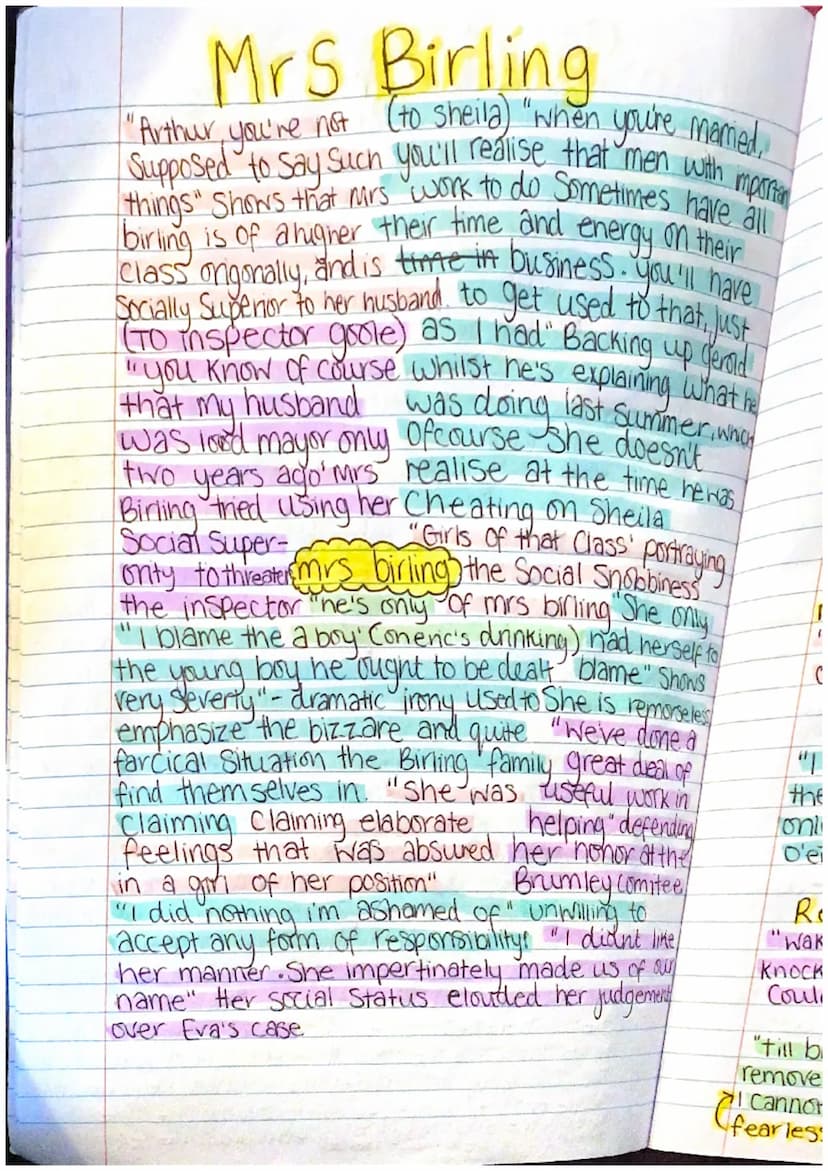 Mrs Birling
"Arthur you're not
Supposed to say such
things" Shows that Mrs
birling is of a higher
class origonally, and is
socially superior to her husband.
(To inspector goole)
"you know of course
that my husband
was lord mayor only
two years ago' Mrs
Birling tried using her
Social Super-
ority to threaten
the inspector
(to sheila) "When you're married,
you'll realise that men with important
work to do Sometimes have all
their time and energy on their
time in business. you'll have
to get used to that, just
as I had" Backing up gerald
whilst he's explaining what he
was doing last summer, which
ofcourse she doesn't
realise at the time he was
Cheating on Sheila
mrs birling
"Girls of that Class' portraying
the Social Snobbiness
of mrs birling
"he's only
a boy' (on eric's drinking)
"She only
had herself to
blame" Shows
She is remorseless
"I blame the
the young boy he ought to be dealt
very severty" - dramatic irony used to
emphasize the bizzare and quite
farcical situation the Birling family
find themselves in.
"She was
claiming claiming elaborate
feelings that was absured
in a girl of her position"
"We've done a
great deal of
useful work in
helping" defending
her honor at the
Brumley comitee
"I did nothing i'm ashamed of" unwilling to
accept any form of responsibility!
"I didnt like
her manner. She impertinately made us of our
name" Her social status clouded her judgement
over Eva's case
"I
the
onl
O'ei
Re
"wak
Knock
Coul
"till b
remove
I cannot
fearless